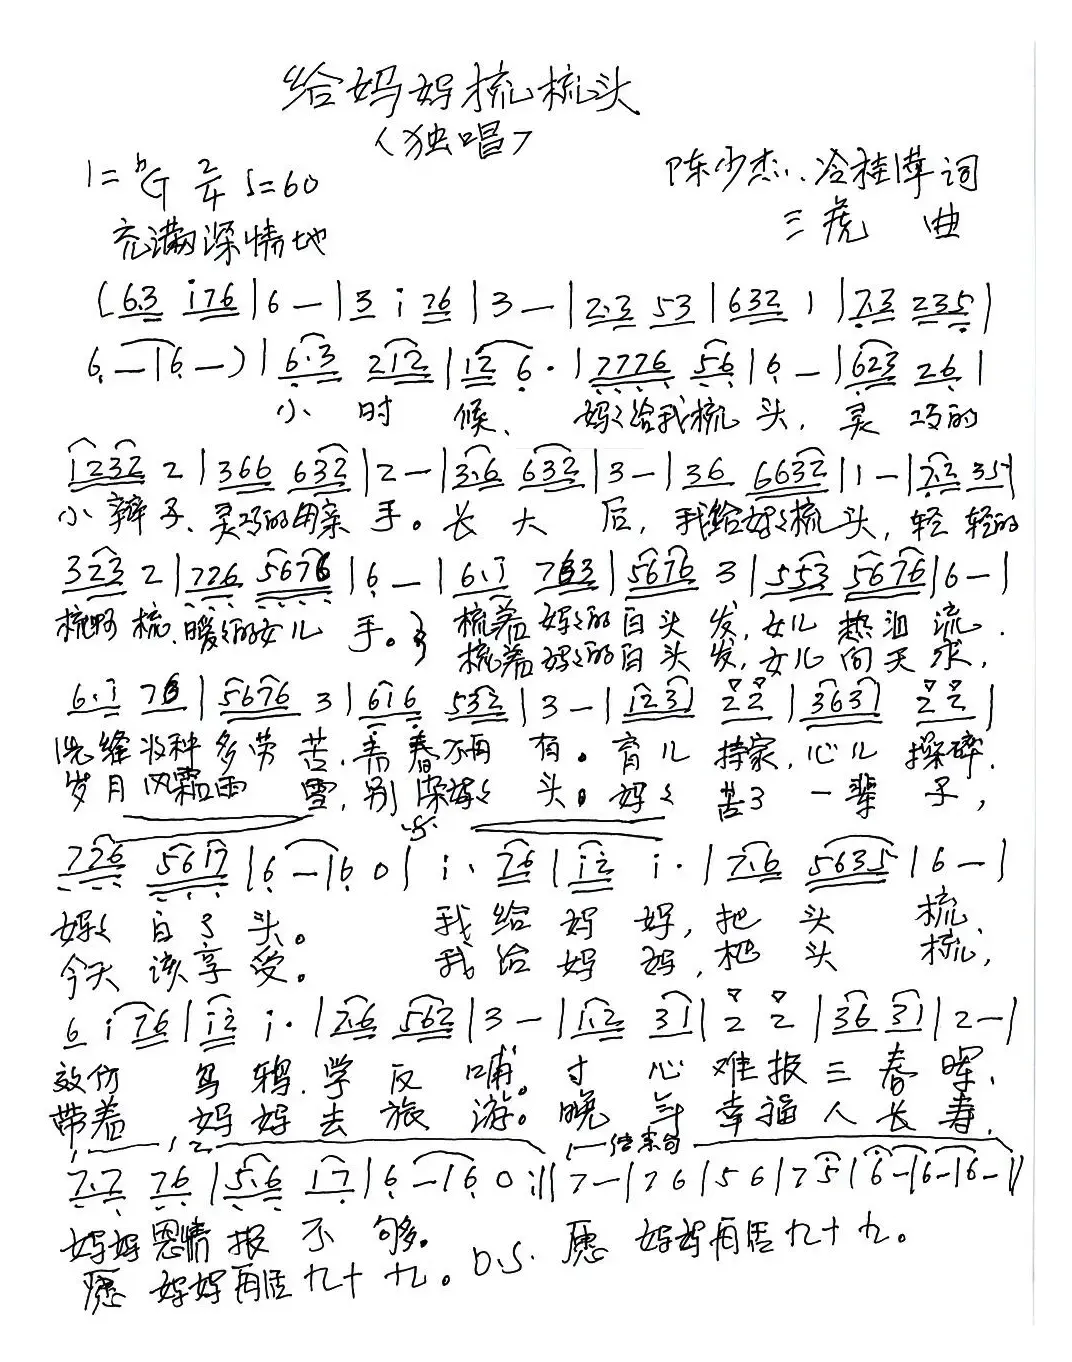 给妈妈梳梳头
(独唱)
1=ᵇG 2/4 ♩=60
陈少杰、冷桂萍词
充满深情地
三虎 曲
(6.3 i76|6 —|3 i 76|3 —|2.3 53|632 1|7.3 235|
6 —|6 —)|6.3 212|12 6·|7776 56|6 —|623 26|
小 时 候、 妈妈给我梳 头, 灵 巧的
1232 2|366 632|2 —|3.6 632|3 —|36 6632|1 —|7.2 35|
小 辫 子、灵巧的用亲 手。长 大 后, 我给妈妈梳 头, 轻 轻的
323 2|726 5676|6 —|6.i 763|5676 3|553 5676|6 —|
梳啊 梳、暖暖的女儿 手。 梳着 妈妈的白头 发, 女儿 热泪 流.
梳着 妈妈的白头 发, 女儿 问天 求,
6.i 76|5676 3|616 532|3 —|1231 22|3631 22|
洗缝收种多劳 苦、青春不再 有。育儿 持家,心儿 操碎.
岁月风霜雨 雪, 别染妈妈 头。妈妈 苦了 一辈 子,
726 5617|6 —|6 0|i· 76|i2 i·|7.6 5635|6 —|
妈妈 白了 头。 我给 妈 妈, 把 头 梳、
今天 该享 受。 我给 妈 妈, 把 头 梳,
6 i 76|i2 i·|7.6 562|3 —|1.2 31|2 2|36 31|2 —|
效仿 乌 鸦、学 反 哺。寸 心 难报三春 晖、
带着 妈 妈去 旅 游。晚 年 幸福人长 寿,
1, 2, 结束句
7.7 76|5.6 17|6 —|6 0:‖7 —|76|56|75|6 —|6 —|6 —‖
妈妈恩情 报 不 够。 D.S. 愿 妈妈再活九十 九。
愿 妈妈再活九十 九。